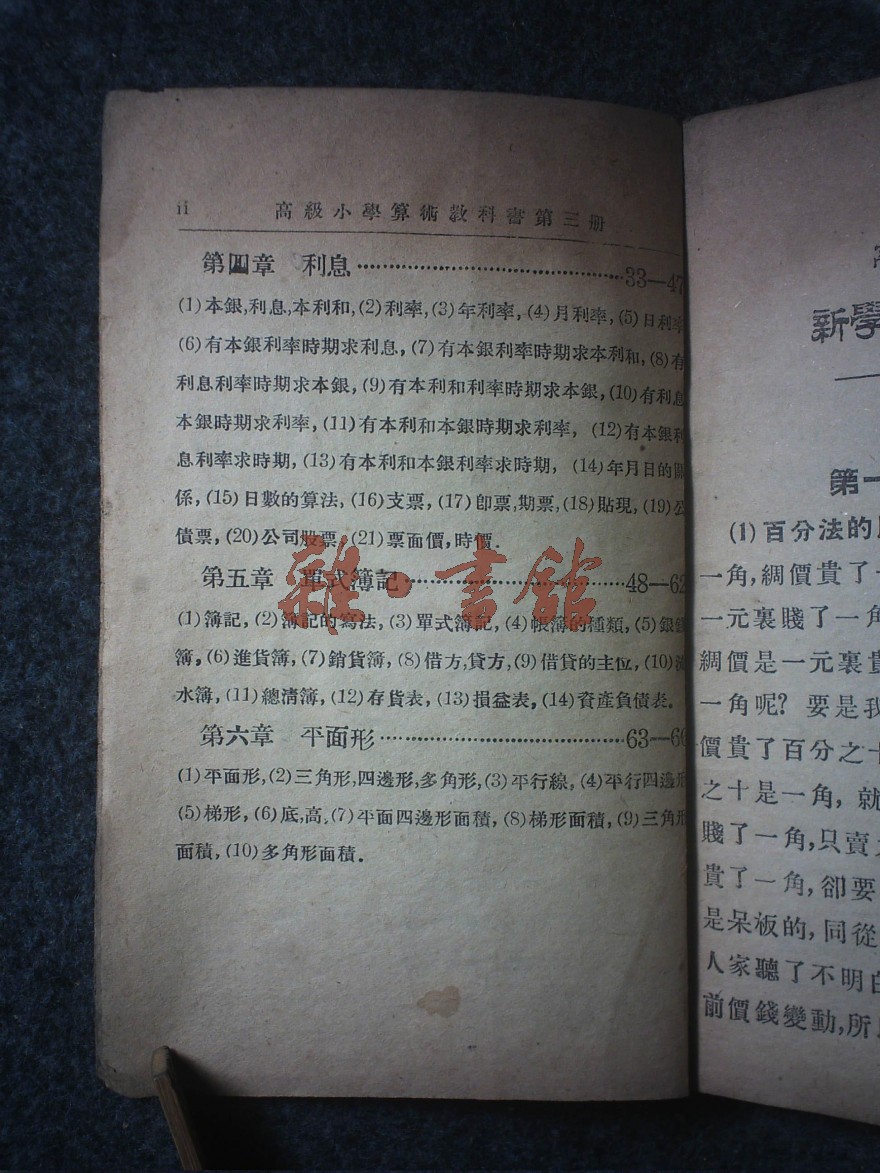 ii 高級小學算術教科書第三册
第四章 利息……33—47
(1)本銀,利息,本利和,(2)利率,(3)年利率,(4)月利率,(5)日利率
(6)有本銀利率時期求利息,(7)有本銀利率時期求本利和,(8)有
利息利率時期求本銀,(9)有本利和利率時期求本銀,(10)有利息
本銀時期求利率,(11)有本利和本銀時期求利率,(12)有本銀利
息利率求時期,(13)有本利和本銀利率求時期,(14)年月日的關
係,(15)日數的算法,(16)支票,(17)卽票,期票,(18)貼現,(19)公
債票,(20)公司股票,(21)票面價,時價.
第五章 單式簿記……48—62
(1)簿記,(2)簿記的寫法,(3)單式簿記,(4)帳簿的種類,(5)銀錢
簿,(6)進貨簿,(7)銷貨簿,(8)借方,貸方,(9)借貸的主位,(10)流
水簿,(11)總淸簿,(12)存貨表,(13)損益表,(14)資產負債表.
第六章 平面形……63—66
(1)平面形,(2)三角形,四邊形,多角形,(3)平行線,(4)平行四邊形
(5)梯形,(6)底,高,(7)平面四邊形面積,(8)梯形面積,(9)三角形
面積,(10)多角形面積.
雜·書館
新學
第一
(1)百分法的
一角,綢價貴了一
一元裏賤了一角
綢價是一元裏貴
一角呢?要是我
價貴了百分之十
之十是一角,就
賤了一角,只賣
貴了一角,卻要
是呆板的,同從
人家聽了不明白
前價錢變動,所